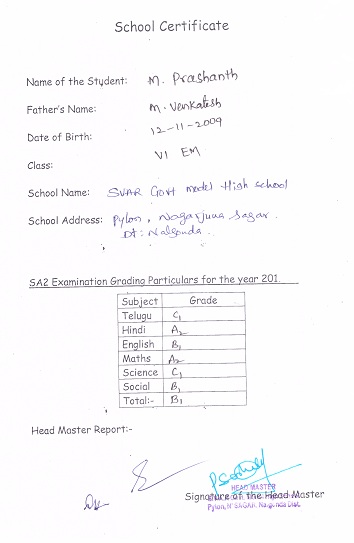 School Certificate
Name of the Student: M. Prashanth
Father's Name: M. Venkatesh
Date of Birth: 12-11-2009
Class: VI EM
School Name: SVAR Govt model High school
School Address: Pylon, Nagarjuna Sagar.
Dt: Nalgonda.
SA2 Examination Grading Particulars for the year 201
Subject Grade
Telugu C1
Hindi A2
English B1
Maths A2
Science C1
Social B1
Total:- B1
Head Master Report:-
HEAD MASTER
Signature of the Head Master
Pylon, N'SAGAR, Nalgonda Dist.